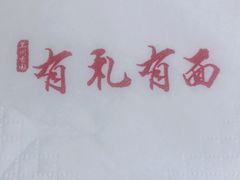 有礼有面